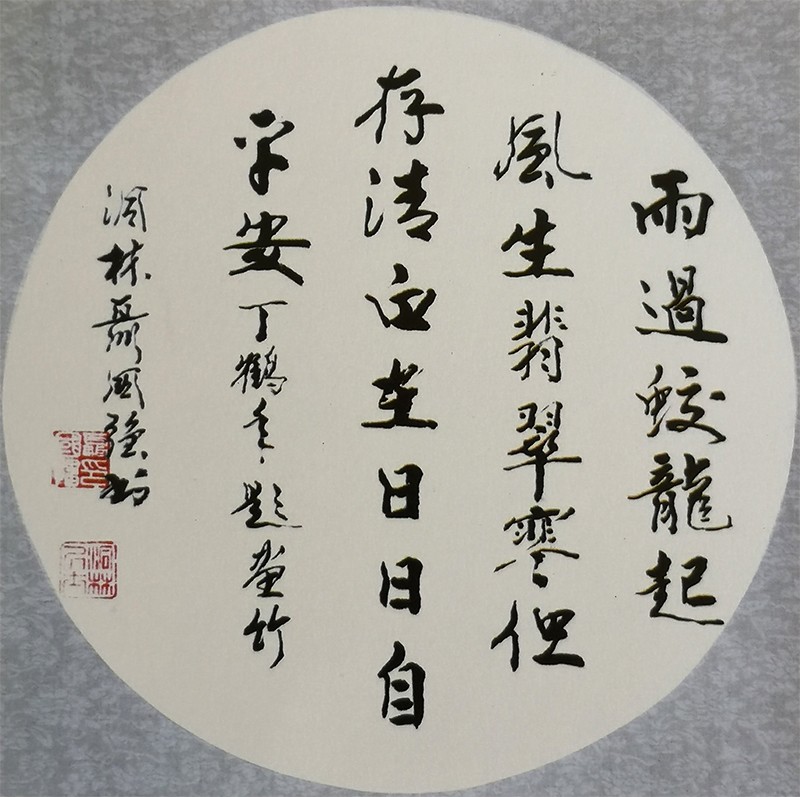 雨過蛟龍起
風生翡翠寒但
存清白在日日自
平安丁鶴年題畫竹
洞林聶國強書